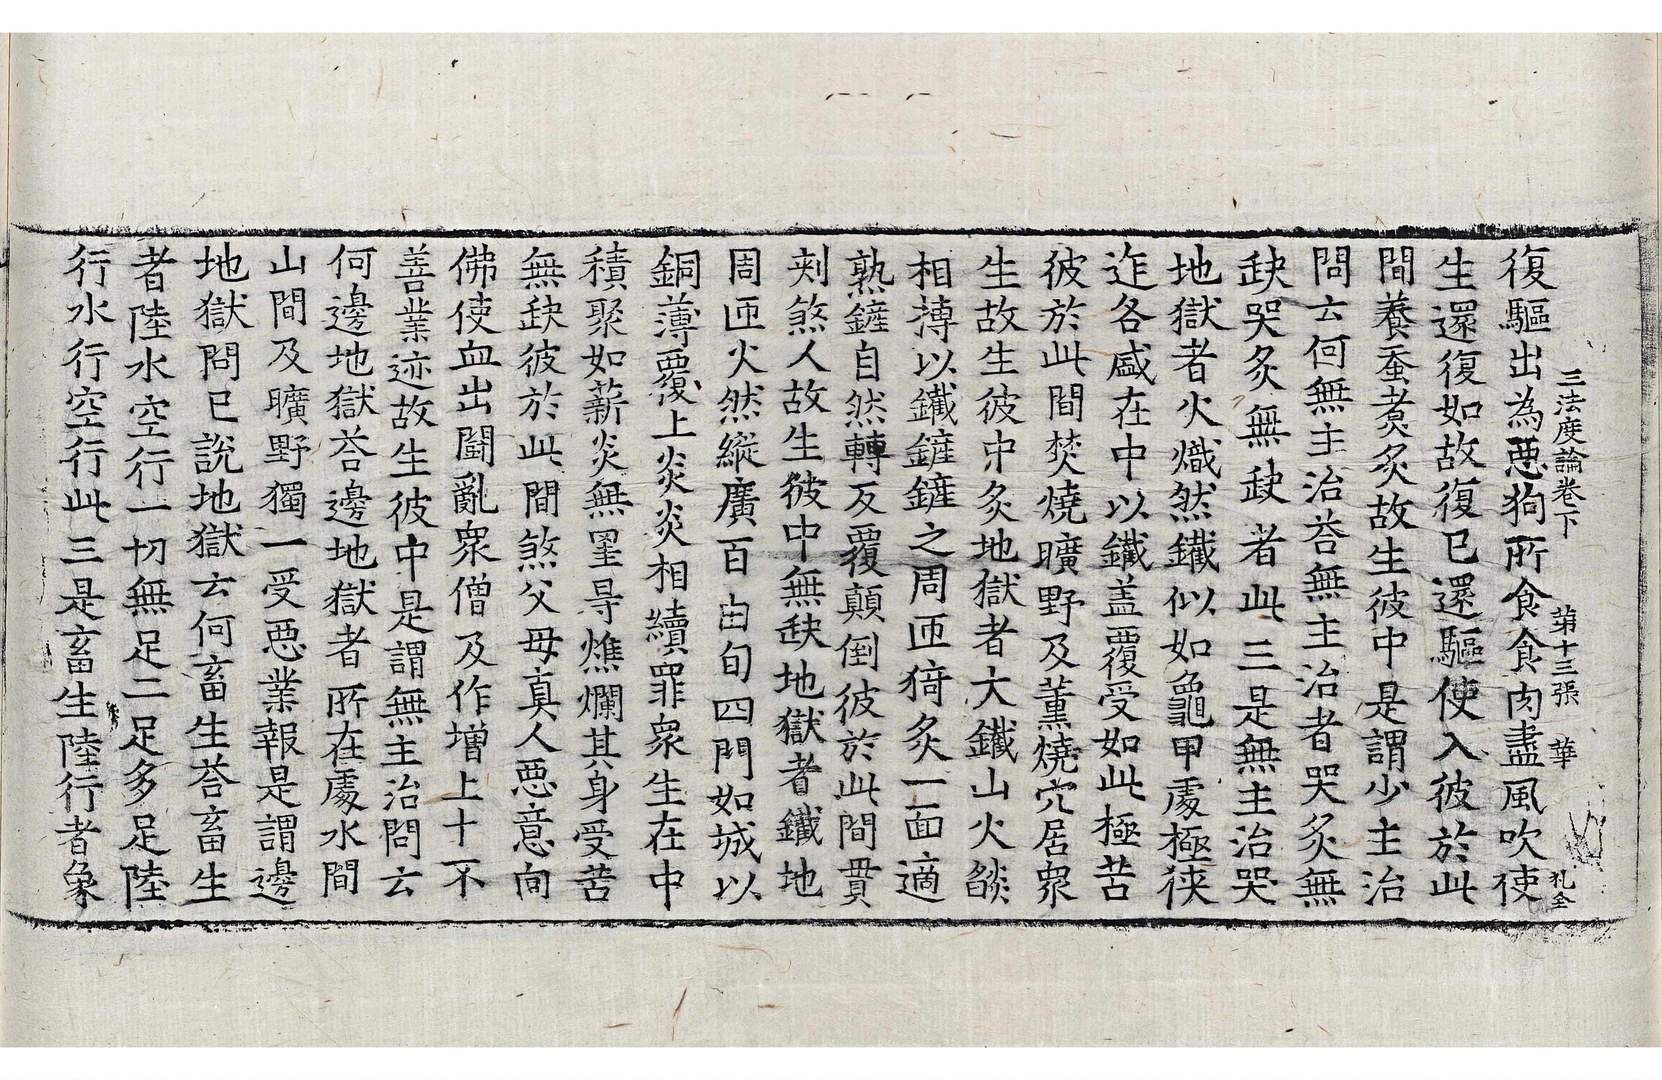 三法度論卷下 第十三張 華 孔全
復驅出為惡狗所食食肉盡風吹使
生還復如故復已還驅使入彼於此
間養蚕煑炙故生彼中是謂少主治
問云何無主治荅無主治者哭炙無
缺哭炙無缺者此三是無主治哭
地獄者火熾然鐵似如龜甲處極狹
迮各咸在中以鐵盖覆受如此極苦
彼於此間焚燒曠野及薫燒穴居衆
生故生彼中炙地獄者大鐵山火燄
相摶以鐵鏟鏟之周匝猗炙一面適
熟鏟自然轉反覆顛倒彼於此間貫
刾煞人故生彼中無缺地獄者鐵地
周匝火然縱廣百由旬四門如城以
銅薄覆上炎炎相續罪衆生在中
積聚如薪炎無罣㝵燋爛其身受苦
無缺彼於此間煞父母真人惡意向
佛使血出鬪亂衆僧及作增上十不
善業迹故生彼中是謂無主治問云
何邊地獄荅邊地獄者所在處水間
山間及曠野獨一受惡業報是謂邊
地獄問已說地獄云何畜生荅畜生
者陸水空行一切無足二足多足陸
行水行空行此三是畜生陸行者象